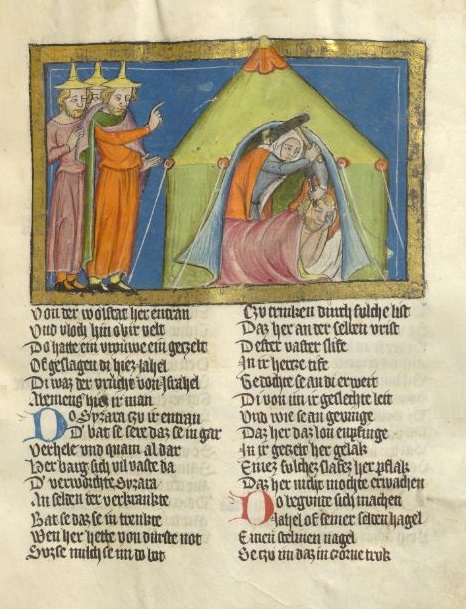 Von der wolstat her entran
Vnd vloch hin vbir velt
Do hatte ein vrowe ein gezelt
Of geslagen di hiez Jahel
Di waz der vrucht von Israhel
hiez ir man
Do Syzara czv ir entran
D' bat se sere daz se in gar
Verhele vnd quam al dar
Her barg sich vil vaste da
D' verworchte Syzara
An selden der verkrankte
Bat se daz se in trenkte
Wen her hette von durste not
Suzse milch se im do bot
Czv trinken durch sulche list
Daz her an der selben vrist
Dester vaster slife
In ir hertze tife
Gedochte se an di erweit
Di von im ir geslechte leit
Vnd wie se an gevinge
Daz her daz lon enpfinge
In ir gezelt her gelak
Einez sulchez slafez her pflak
Daz her nicht mochte erwachen
Do begunde sich machen
Jahel of seiner selden hagel
Einen nagel
Setzv im daz in czorne truk